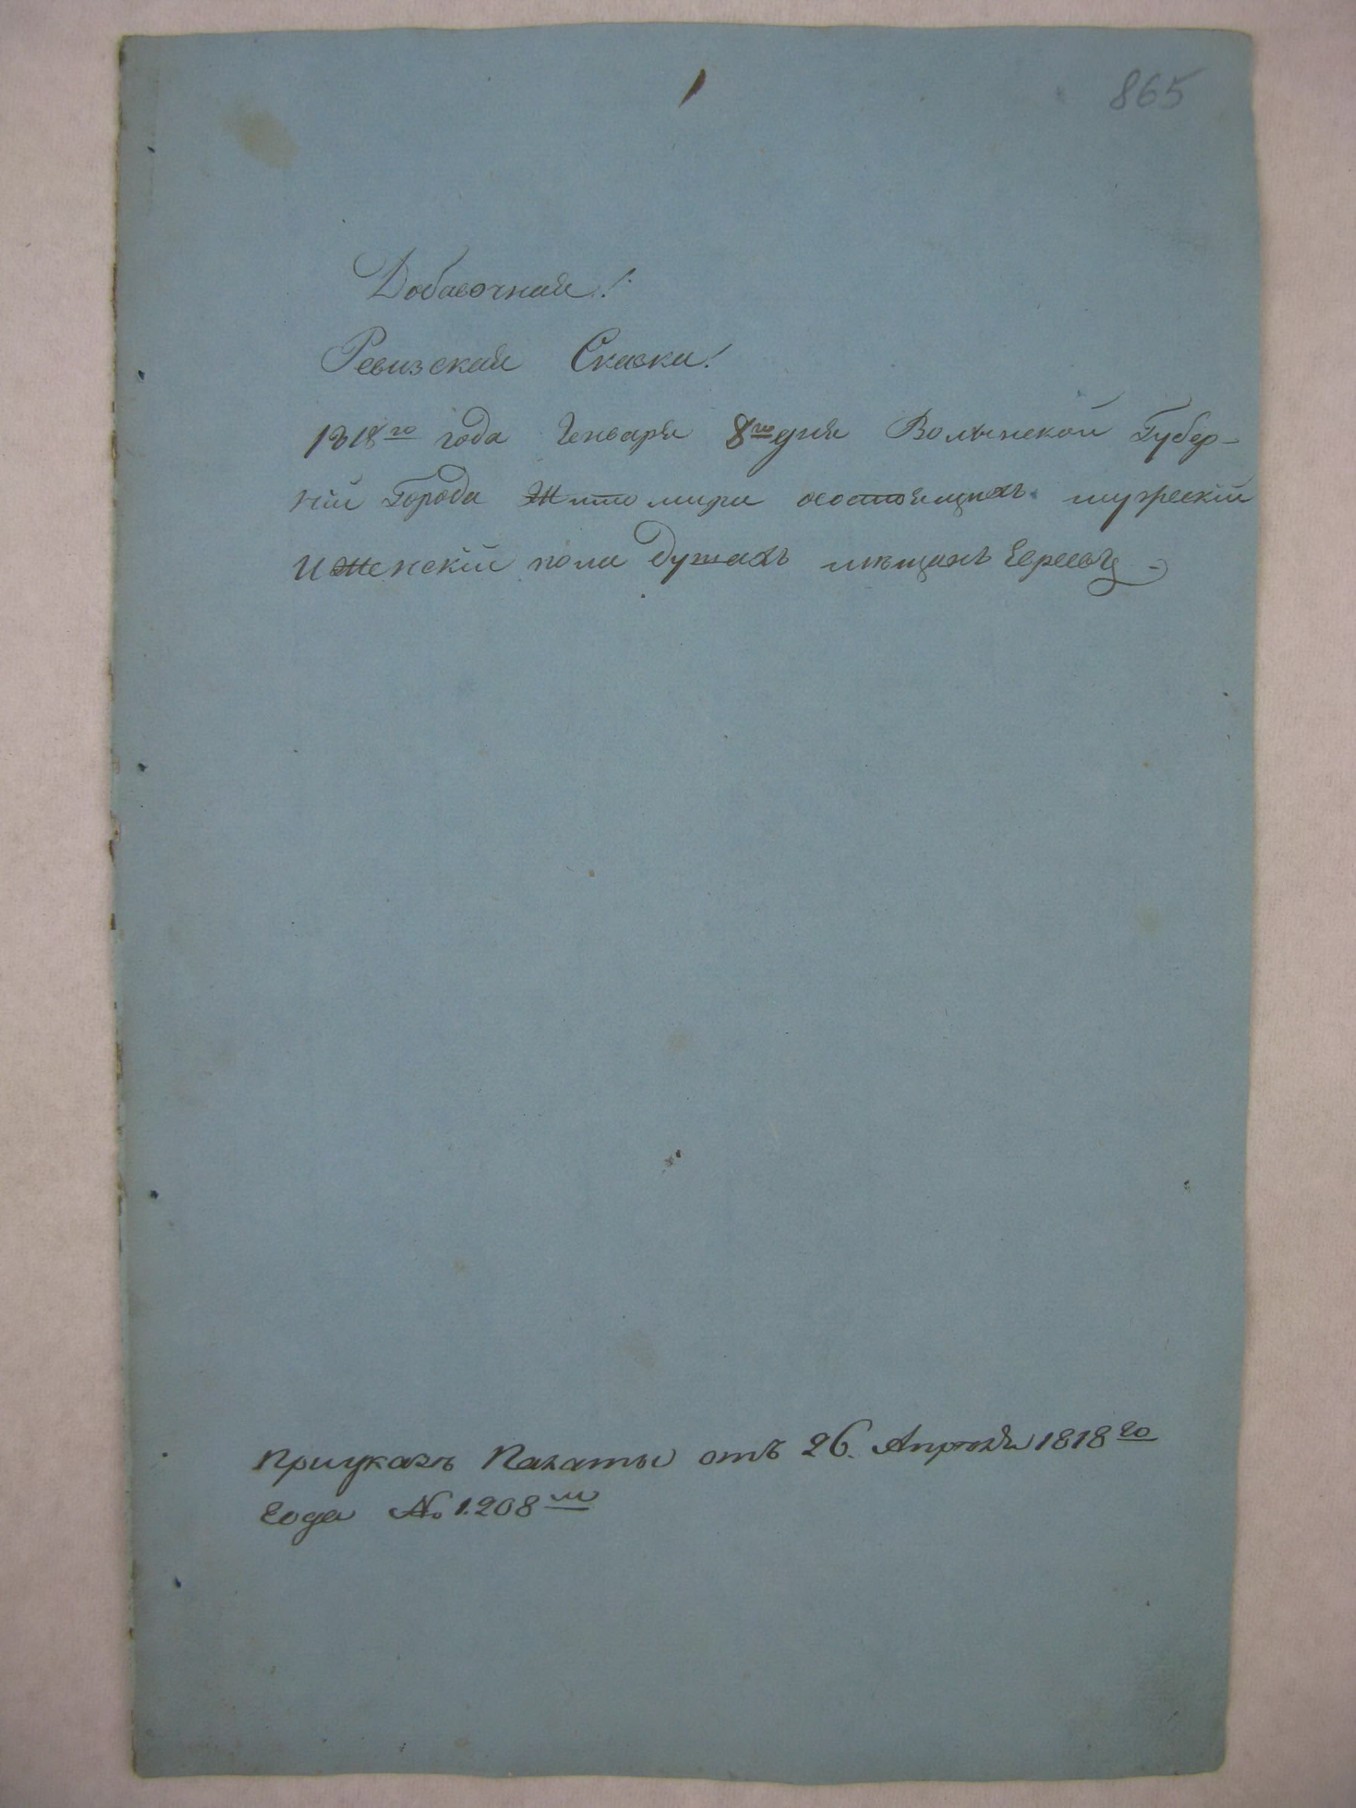 865
Добавочная!
Ревизская Сказка!
1818го года Генваря 8го дня Волынской Губер-
нїи Города Житомира осостоящихъ мужескїи
И Женскїи пола душахъ мѣщанъ Евреевъ
При указѣ Палаты отъ 26. Апрѣля 1818го
года № 1.208м